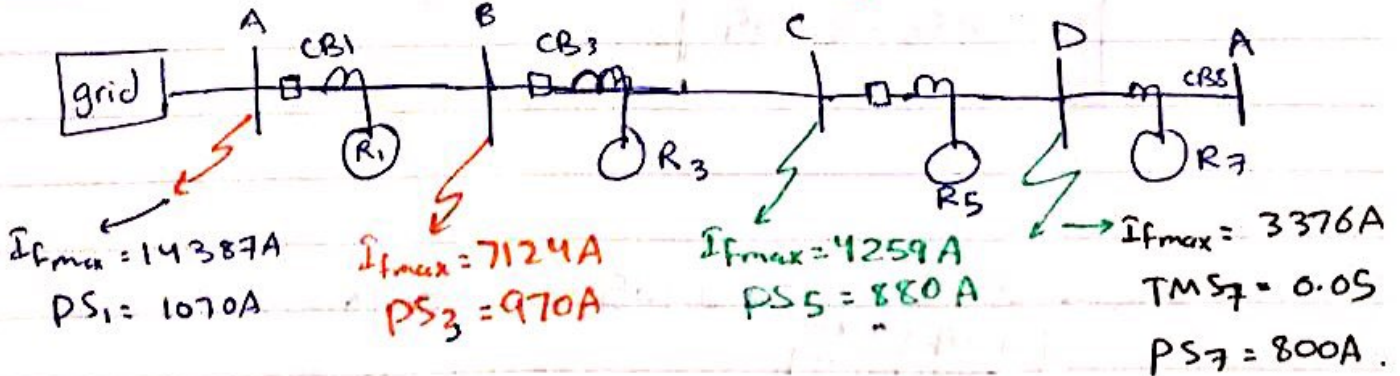 A B C D A
CB1 CB3 CB8
grid
R1 R3 R5 R7
Ifmax = 14387A
PS1 = 1070A
Ifmax = 7124A
PS3 = 970A
Ifmax = 4259A
PS5 = 880A
Ifmax = 3376A
TMS7 = 0.05
PS7 = 800A.